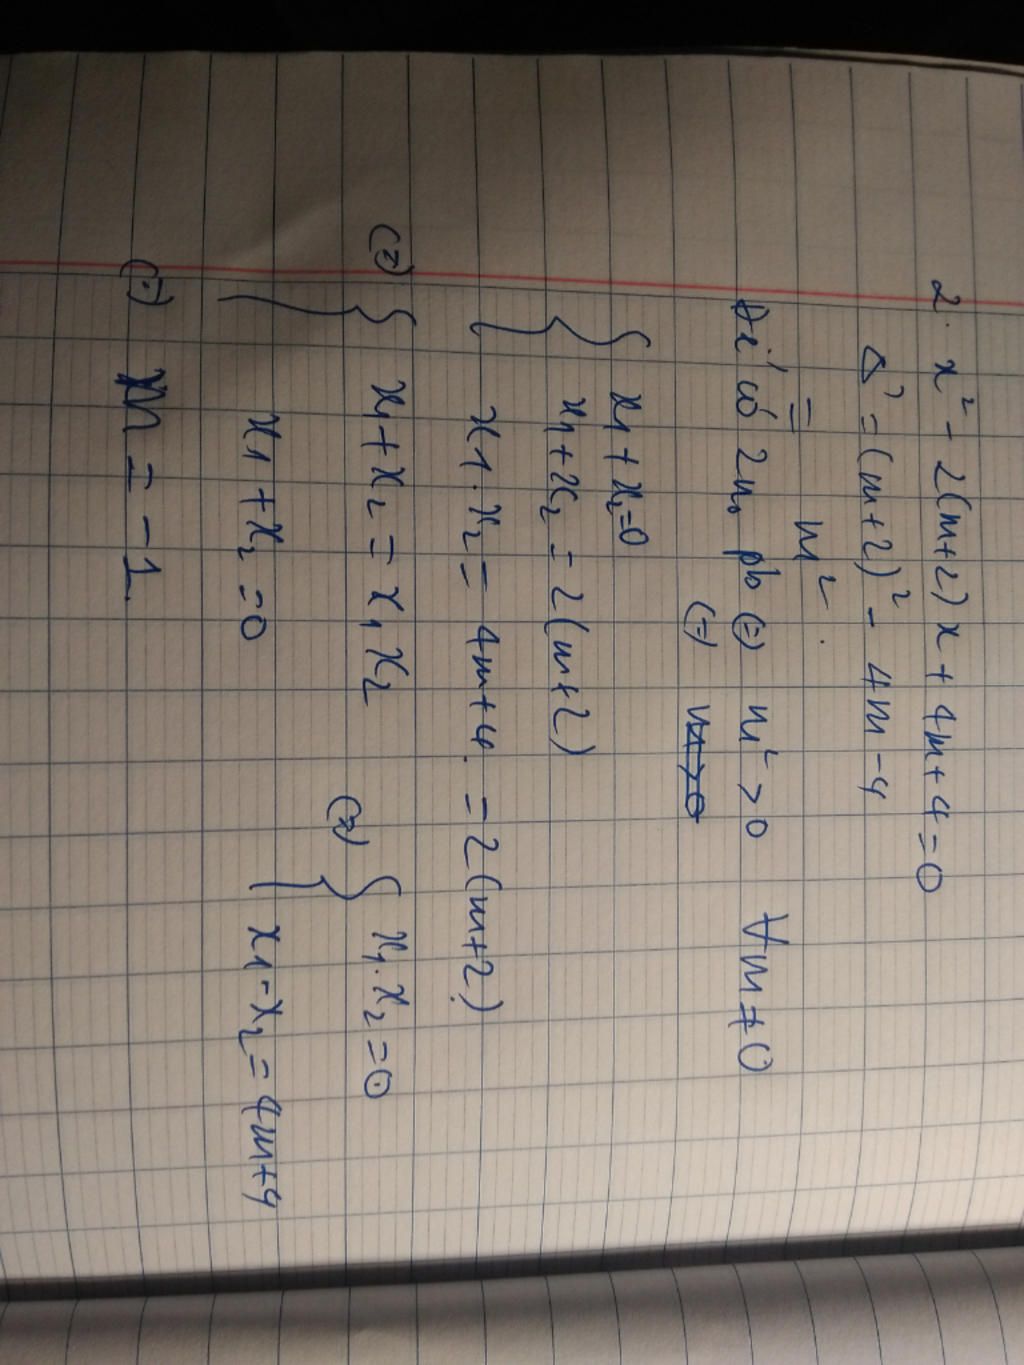 2. x² - 2(m+2)x + 4m+4 = 0
Δ' = (m+2)² - 4m - 4
= m².
Để có 2n₀ pb (=) m² > 0 ∀m ≠ 0
(=) m > 0
{ x₁ + x₂ = 0
x₁ + x₂ = 2(m+2)
x1.x₂ = 4m+4. = 2(m+2)
(=) { x₁ + x₂ = x₁x₂ (=) { x₁.x₂ = 0
x₁ + x₂ = 0 x₁ - x₂ = 4m+4
(=) m = -1.